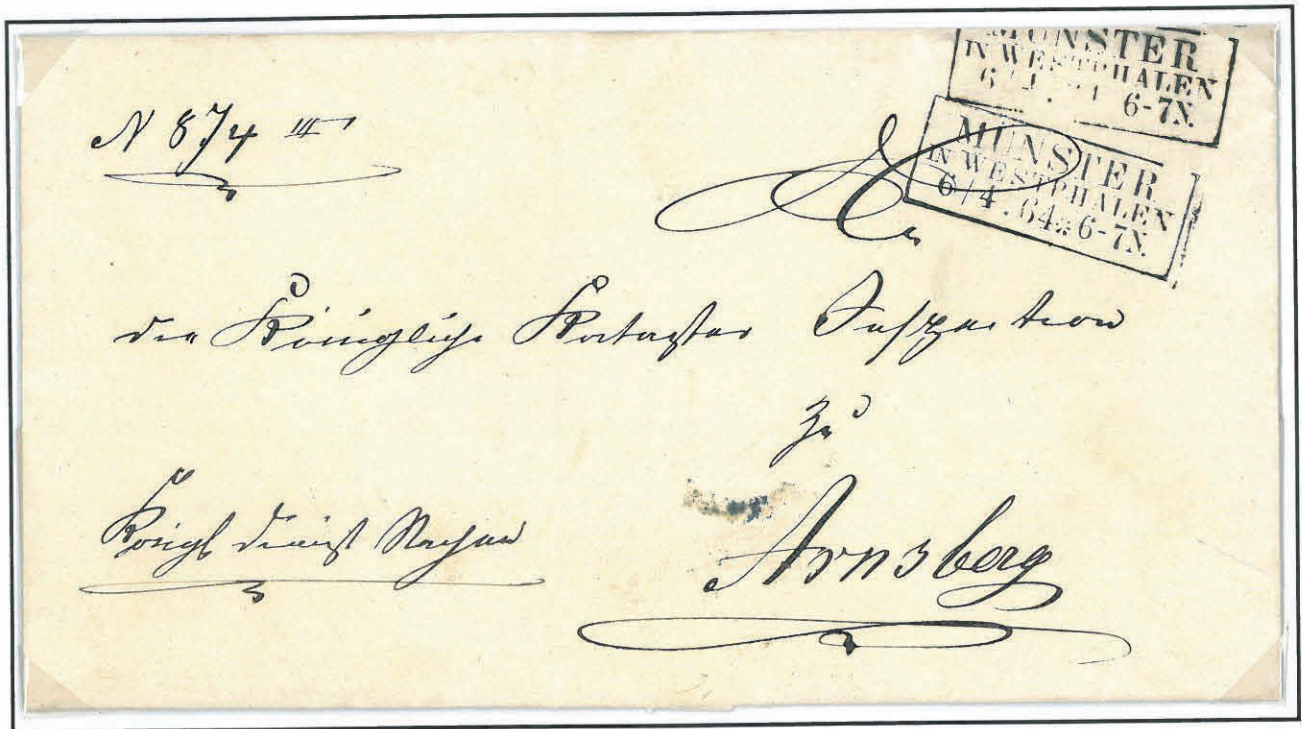 MÜNSTER
IN WESTPHALEN
6/4 6-7N.
MÜNSTER
IN WESTPHALEN
6/4.64* 6-7N.
N 874 III
An
die Königliche Kataster Inspection
zu
Arnsberg
Königl Dienst Sachen